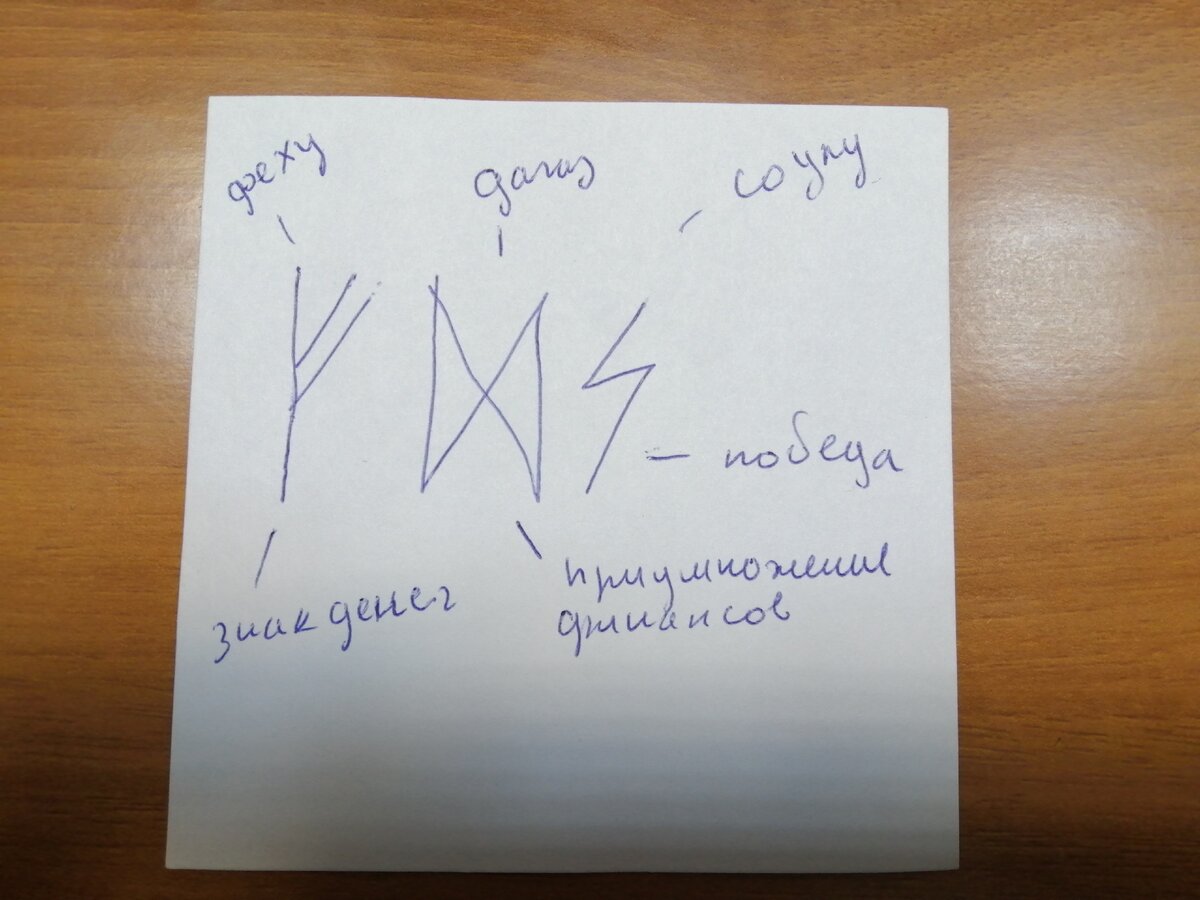 феху
дагаз
соулу
ᚠ ᛞ ᛋ
– победа
знак денег
приумножение
финансов